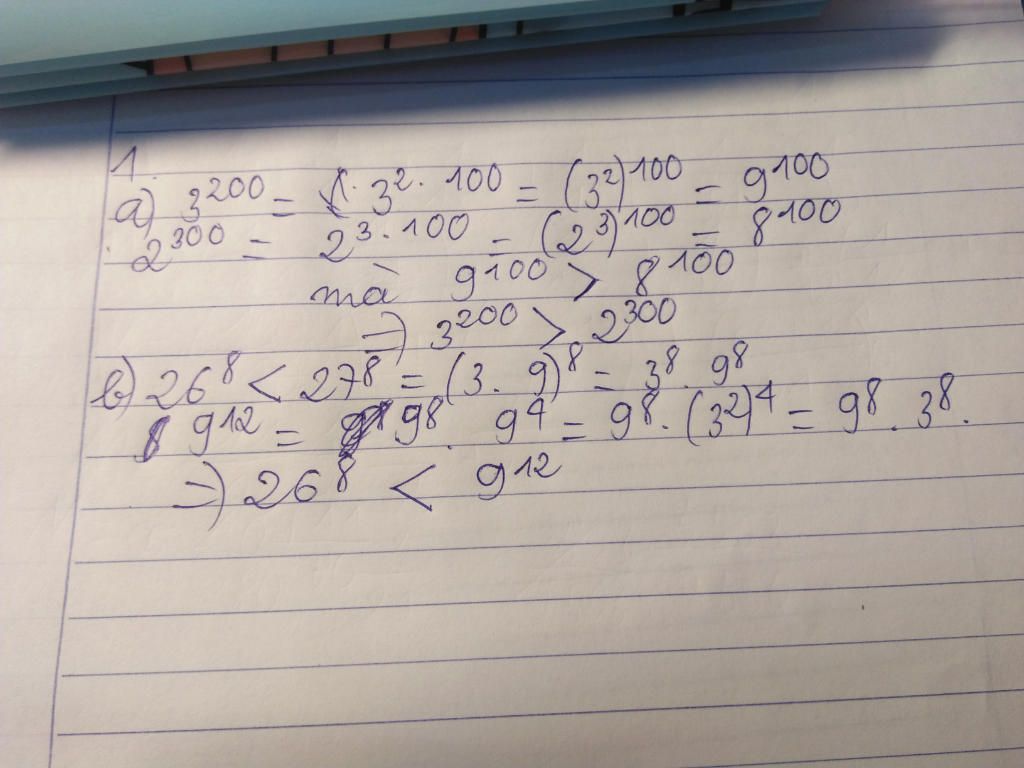 1.
a) 3^200 = 3^2 . 100 = (3^2)^100 = 9^100
2^300 = 2^3 . 100 = (2^3)^100 = 8^100
mà 9^100 > 8^100
=> 3^200 > 2^300
b) 26^8 < 27^8 = (3 . 9)^8 = 3^8 . 9^8
9^12 = 9^8 . 9^4 = 9^8 . (3^2)^4 = 9^8 . 3^8 .
=> 26^8 < 9^12